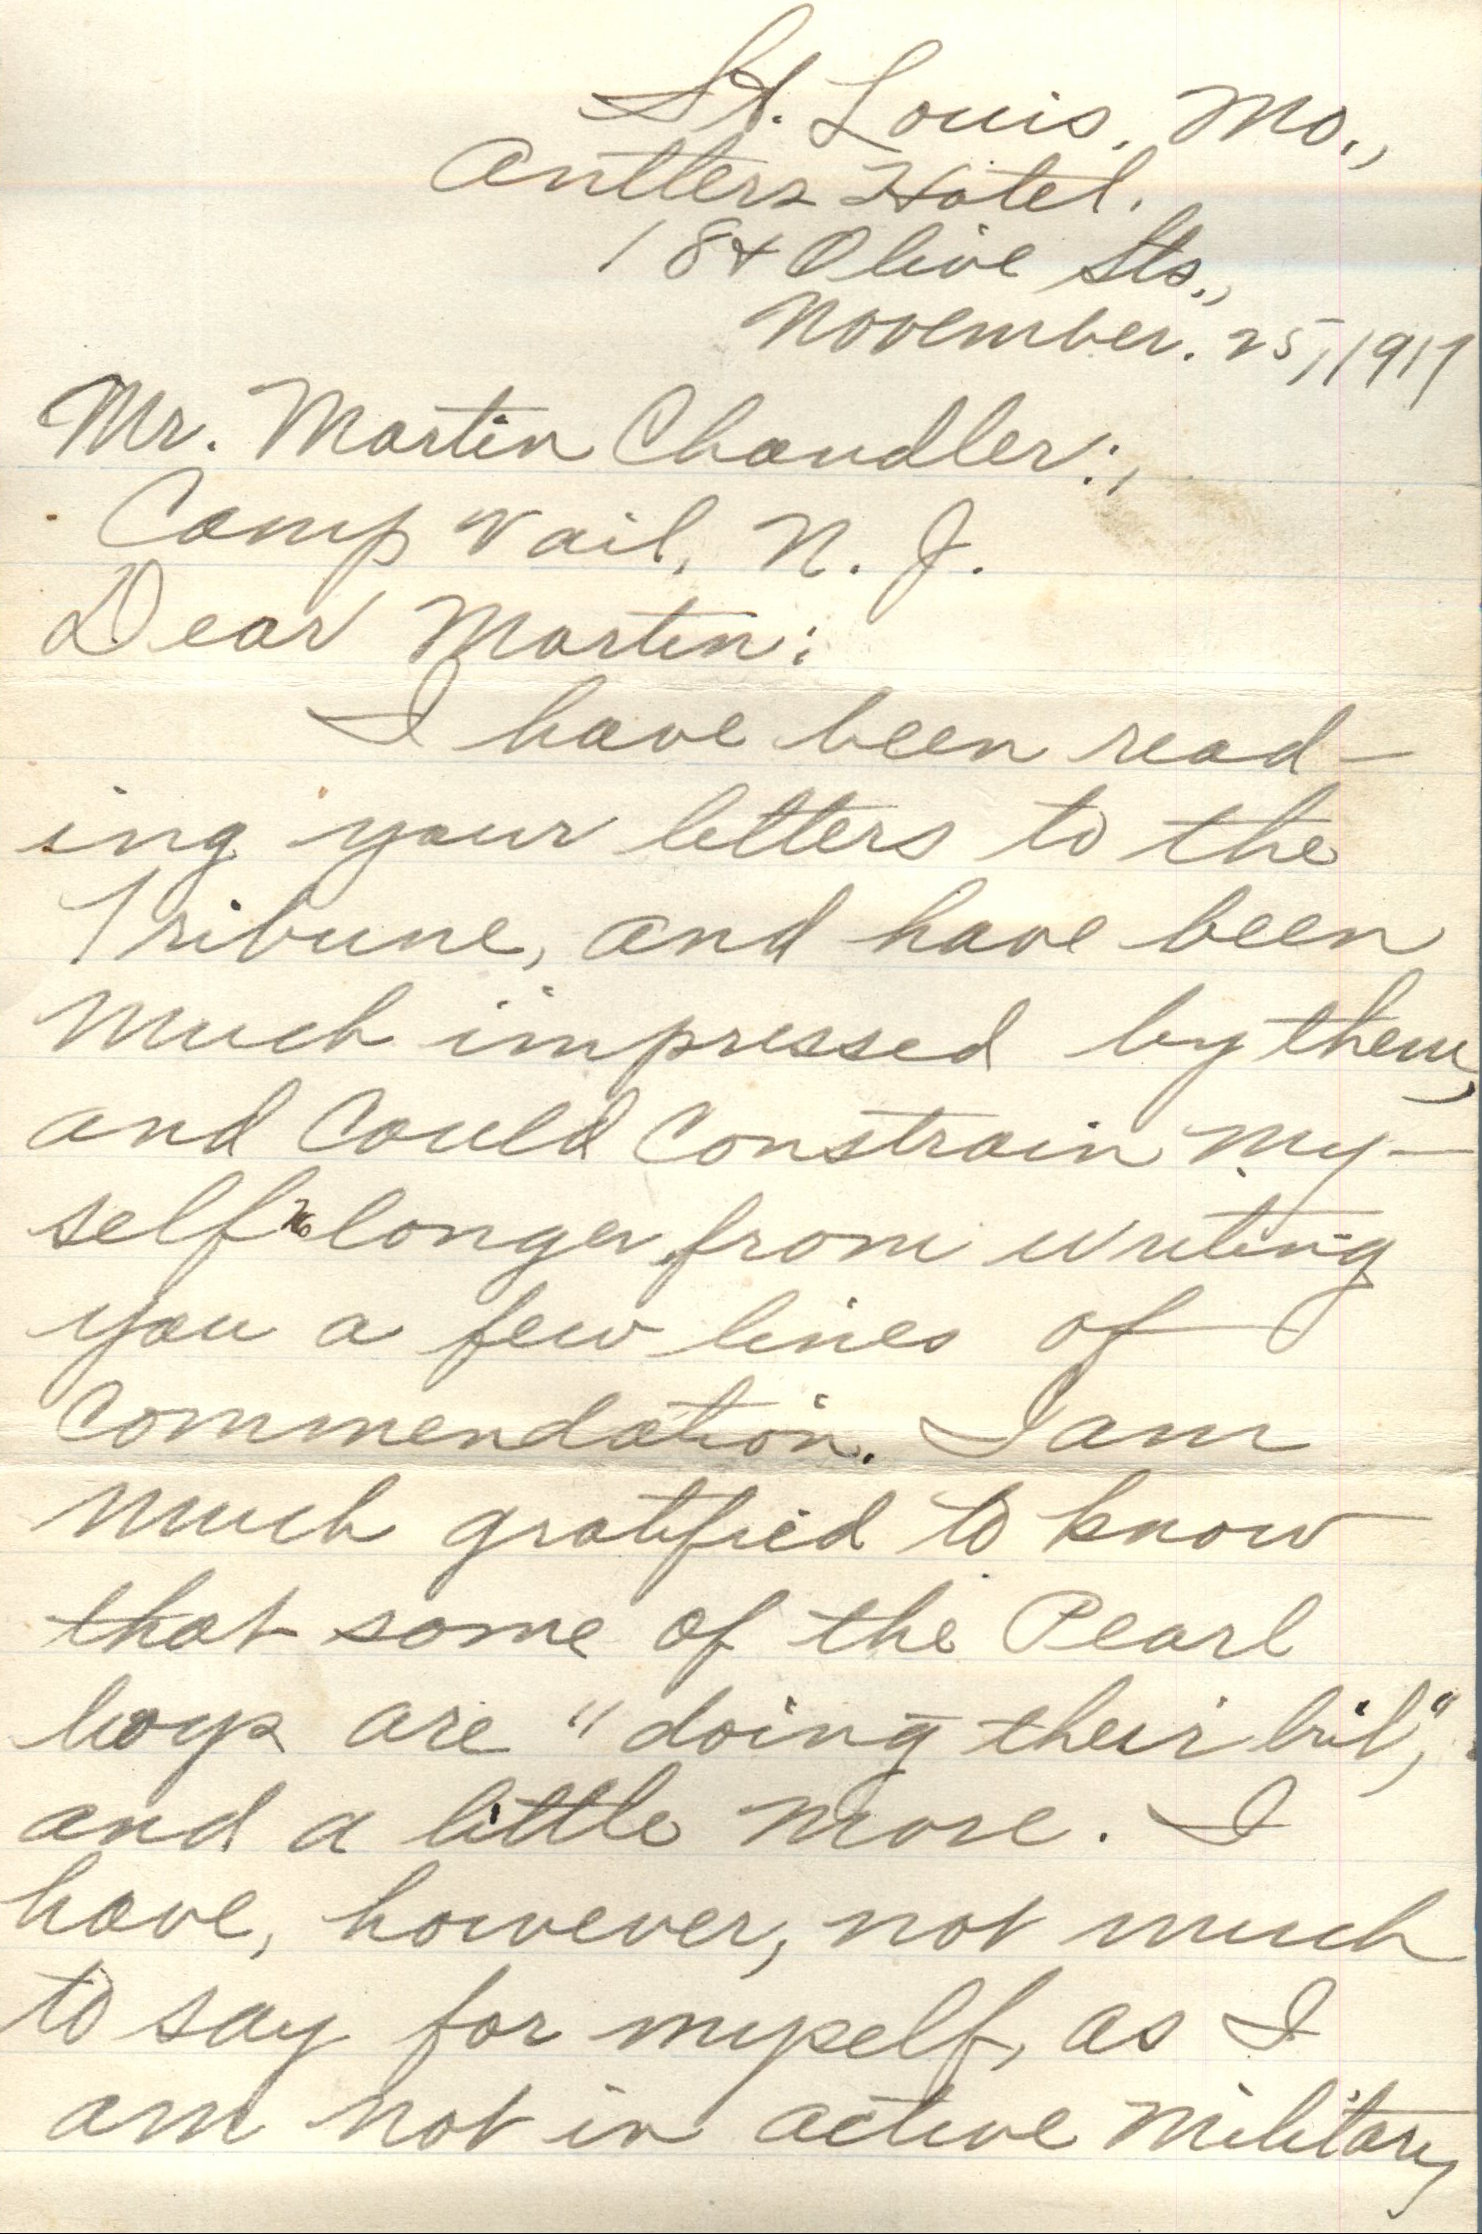 St. Louis, Mo.,
Antlers Hotel.
18 & Olive Sts.,
November. 25, 1917
Mr. Martin Chandler:,
Camp Vail, N. J.
Dear Martin:
I have been read-
ing your letters to the
Tribune, and have been
much impressed by them,
and could constrain my-
self no longer from writing
you a few lines of
commendation. I am
much gratified to know
that some of the Pearl
boys are "doing their bit,"
and a little more. I
have, however, not much
to say for myself, as I
am not in active military